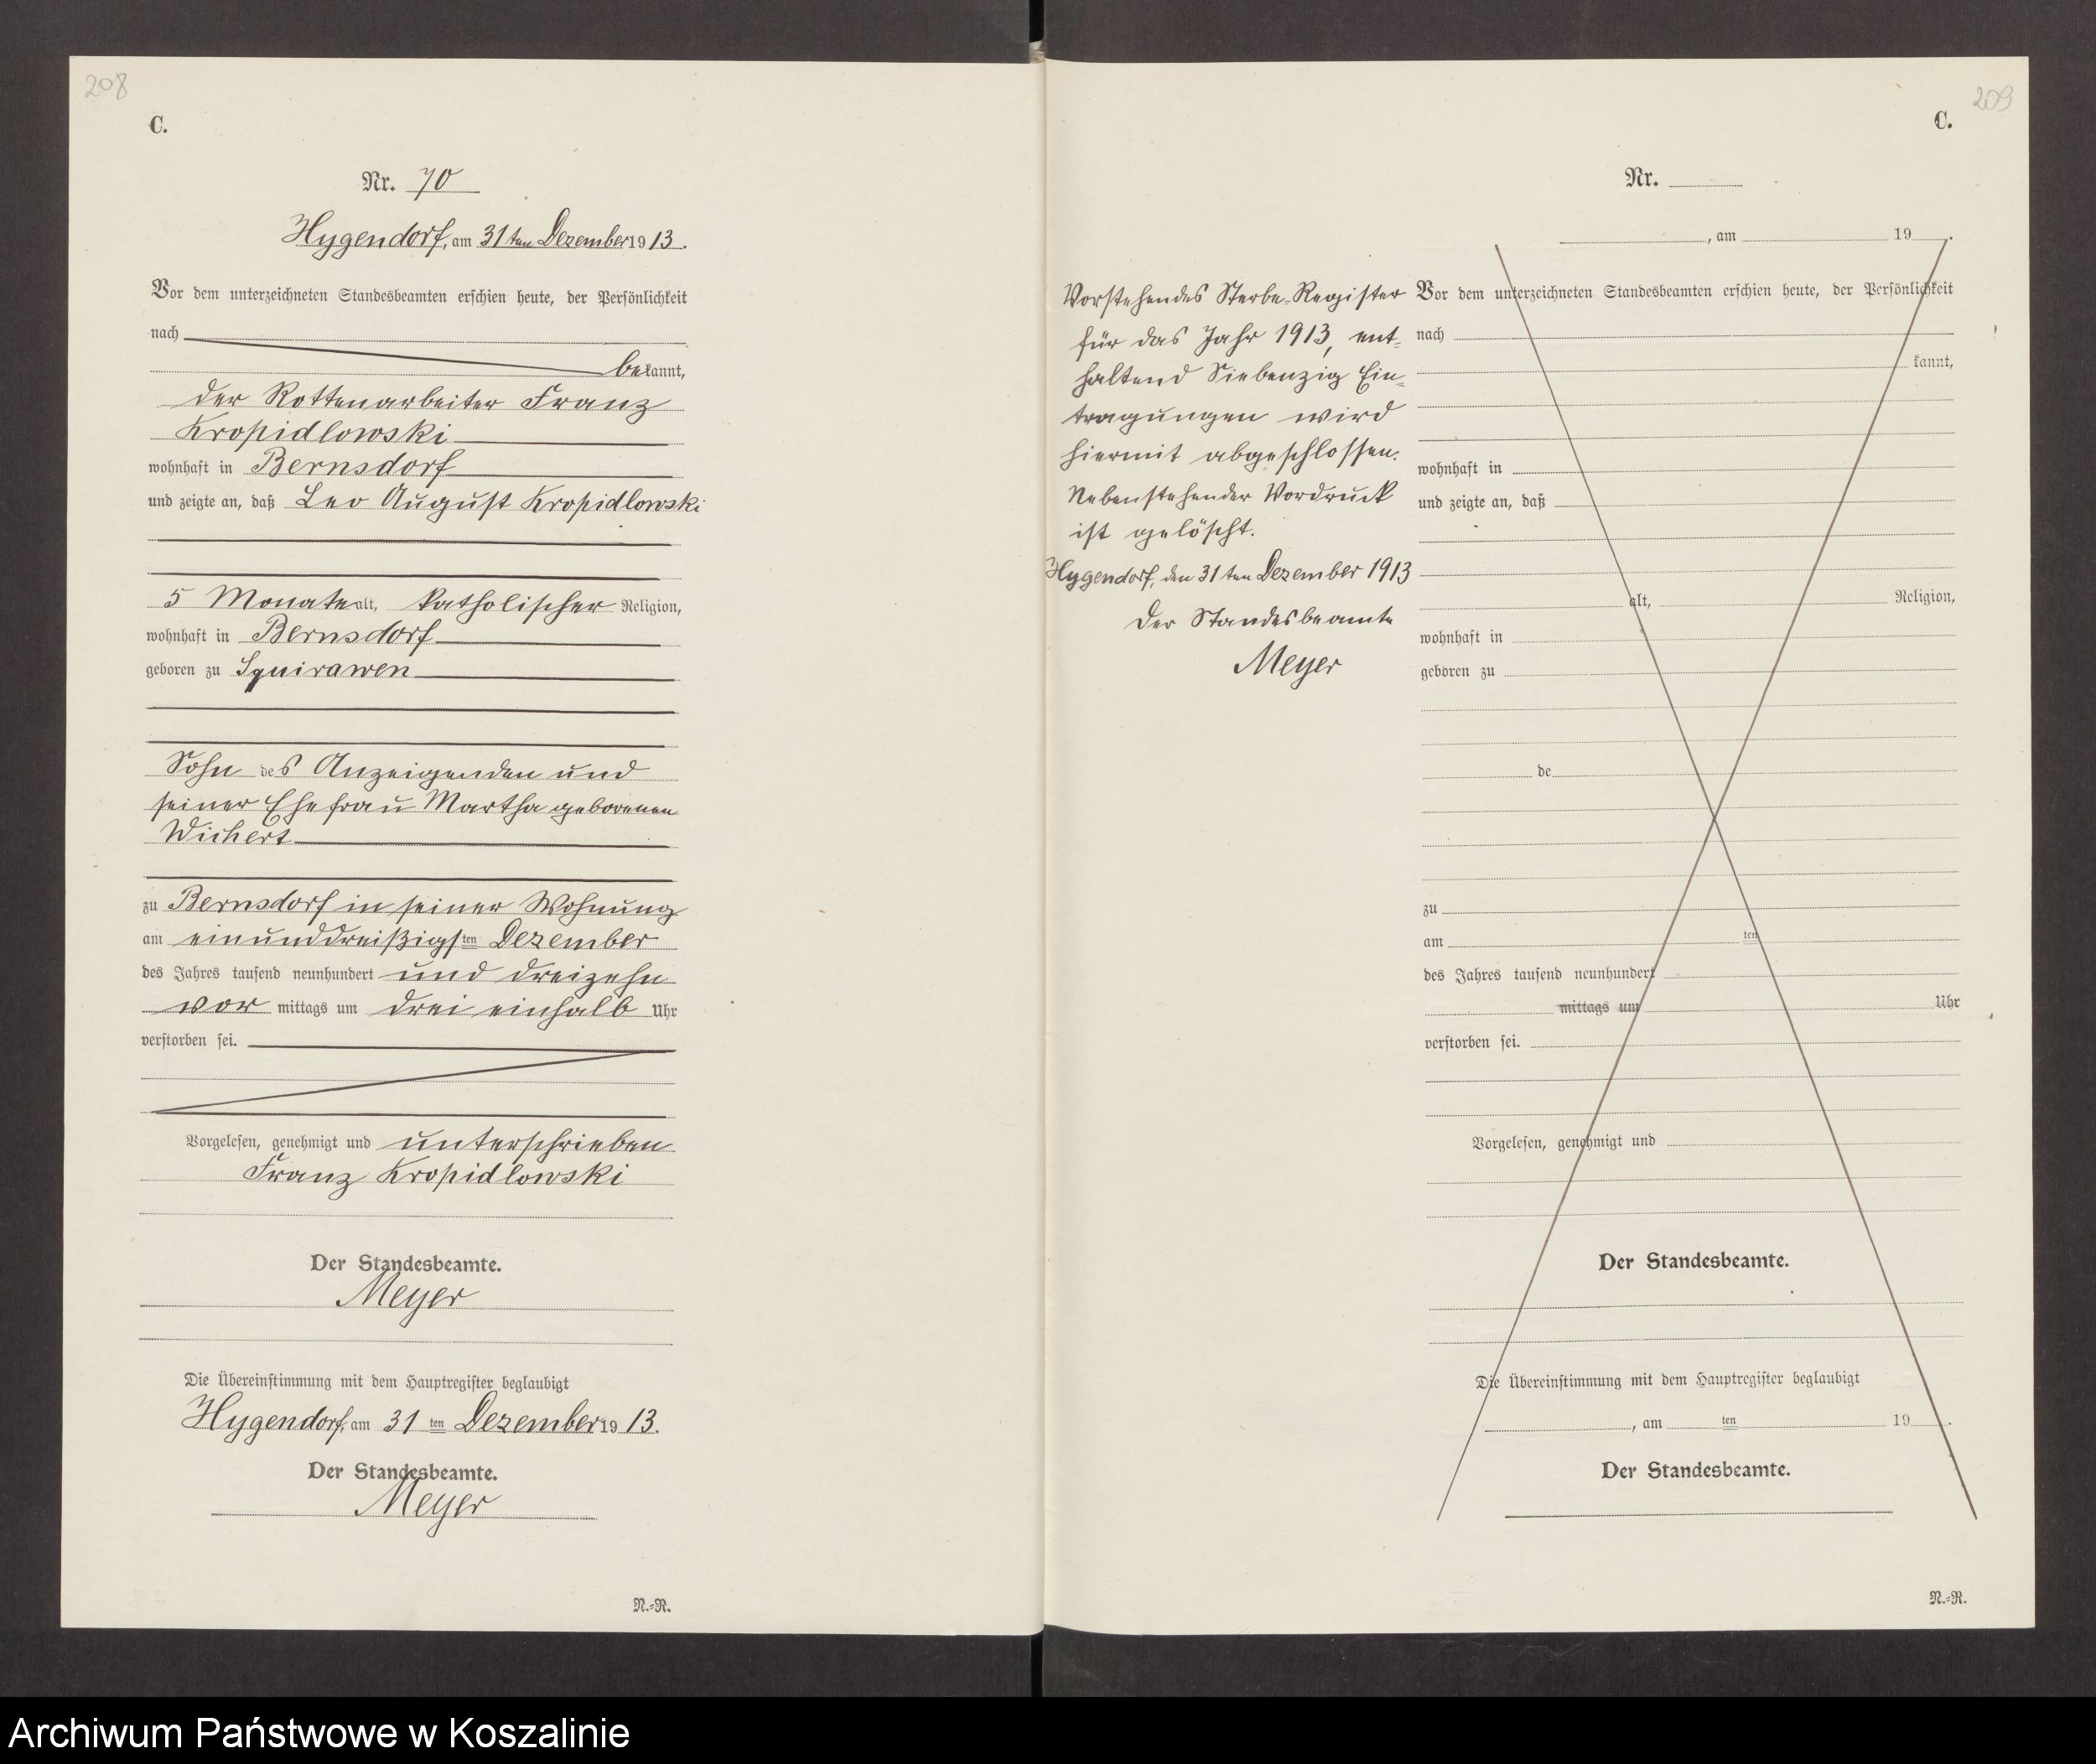 208
C.
Nr. 70
Hygendorf, am 31ten Dezember 1913.
Vor dem unterzeichneten Standesbeamten erschien heute, der Persönlichkeit
nach
bekannt,
der Rottenarbeiter Franz
Kropidlowski
wohnhaft in Bernsdorf
und zeigte an, daß Leo August Kropidlowski
5 Monate alt, katholischer Religion,
wohnhaft in Bernsdorf
geboren zu Squirawen
Sohn des Anzeigenden und
seiner Ehefrau Martha geborenen
Wichert
zu Bernsdorf in seiner Wohnung
am einunddreißigsten Dezember
des Jahres tausend neunhundert und dreizehn
vor mittags um drei einhalb Uhr
verstorben sei.
Vorgelesen, genehmigt und unterschrieben
Franz Kropidlowski
Der Standesbeamte.
Meyer
Die Übereinstimmung mit dem Hauptregister beglaubigt
Hygendorf, am 31 ten Dezember 1913.
Der Standesbeamte.
Meyer
N.=R.
209
C.
Vorstehendes Sterbe-Register
für das Jahr 1913, ent-
haltend Siebenzig Ein-
tragungen wird
hiermit abgeschlossen.
Nebenstehender Vordruck
ist gelöscht.
Hygendorf, den 31ten Dezember 1913
Der Standesbeamte
Meyer
Nr.
, am 19 .
Vor dem unterzeichneten Standesbeamten erschien heute, der Persönlichkeit
nach
kannt,
wohnhaft in
und zeigte an, daß
alt, Religion,
wohnhaft in
geboren zu
de
zu
am ten
des Jahres tausend neunhundert
mittags um Uhr
verstorben sei.
Vorgelesen, genehmigt und
Der Standesbeamte.
Die Übereinstimmung mit dem Hauptregister beglaubigt
, am ten 19 .
Der Standesbeamte.
N.=R.
Archiwum Państwowe w Koszalinie